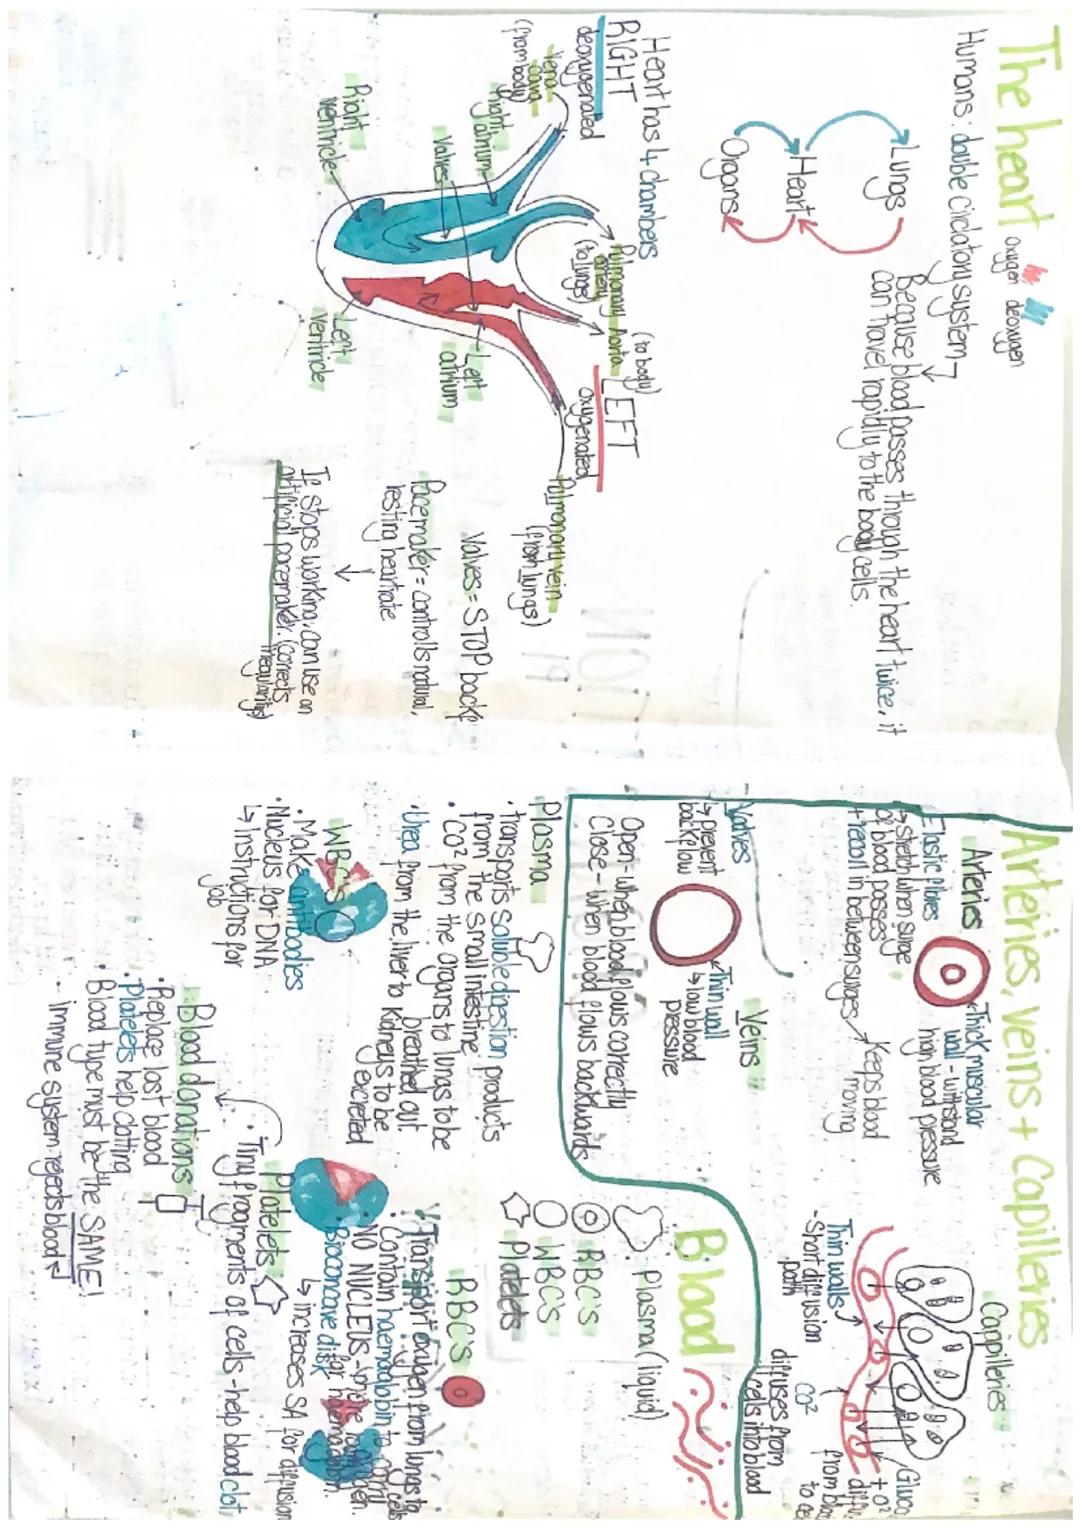 The heart
oxygen deoxygen
Humans: double circlatory system
Because blood passes through the heart twice, it
can travel rapidly to the body cells.
Lungs
Heart
Organs
Heart has 4 chambers
RIGHT
deoxygenated
LEFT
oxygenated
vena
cava
(from body)
Right
atrium
Valves
Right
ventricle
Pulmonary
artery
(to lungs)
Aorta
(to body)
Pulmonary vein
(from lungs)
Left
atrium
Left
ventricle
Valves = STOP backf
Pacemaker = controlls natural,
resting heartrate
If stops working, can use an
artificial pacemaker. (corrects
irregularities)
Arteries, veins + Capilleries
Arteries
Thick muscular
wall - withstand
high blood pressure
Elastic fibres
↳ stretch when surge
of blood passes
+ recoil in between surges
Keeps blood
moving
Capilleries
Thin walls
- Short diffusion
path
CO²
diffuses from
cells into blood
Gluco
+ O²
diffu
from bloo
to ce
Veins
Valves
↳ prevent
backflow
Thin wall
↳ low blood
pressure
Open - when blood flows correctly
Close - when blood flows backwards
Blood
Plasma (liquid)
RBC's
WBC's
Platelets
Plasma
· transports soluble digestion products
from the small intestine
· CO² from the organs to lungs to be
breathed out
· Urea from the liver to kidneys to be
excreted
RBC's
· Transport oxygen from lungs to
cells
· Contain haemoglobin to carry
oxygen.
· NO NUCLEUS - more
for haemoglobin.
Bioconcave disk
↳ increases SA for diffusion
WBC's
· Make antibodies
· Nucleus for DNA
↳ Instructions for
job
Platelets
· Tiny fragments of cells - help blood clot,
Blood donations
· Replace lost blood
· Platelets help clotting
· Blood type must be the SAME!
- immune system rejects blood